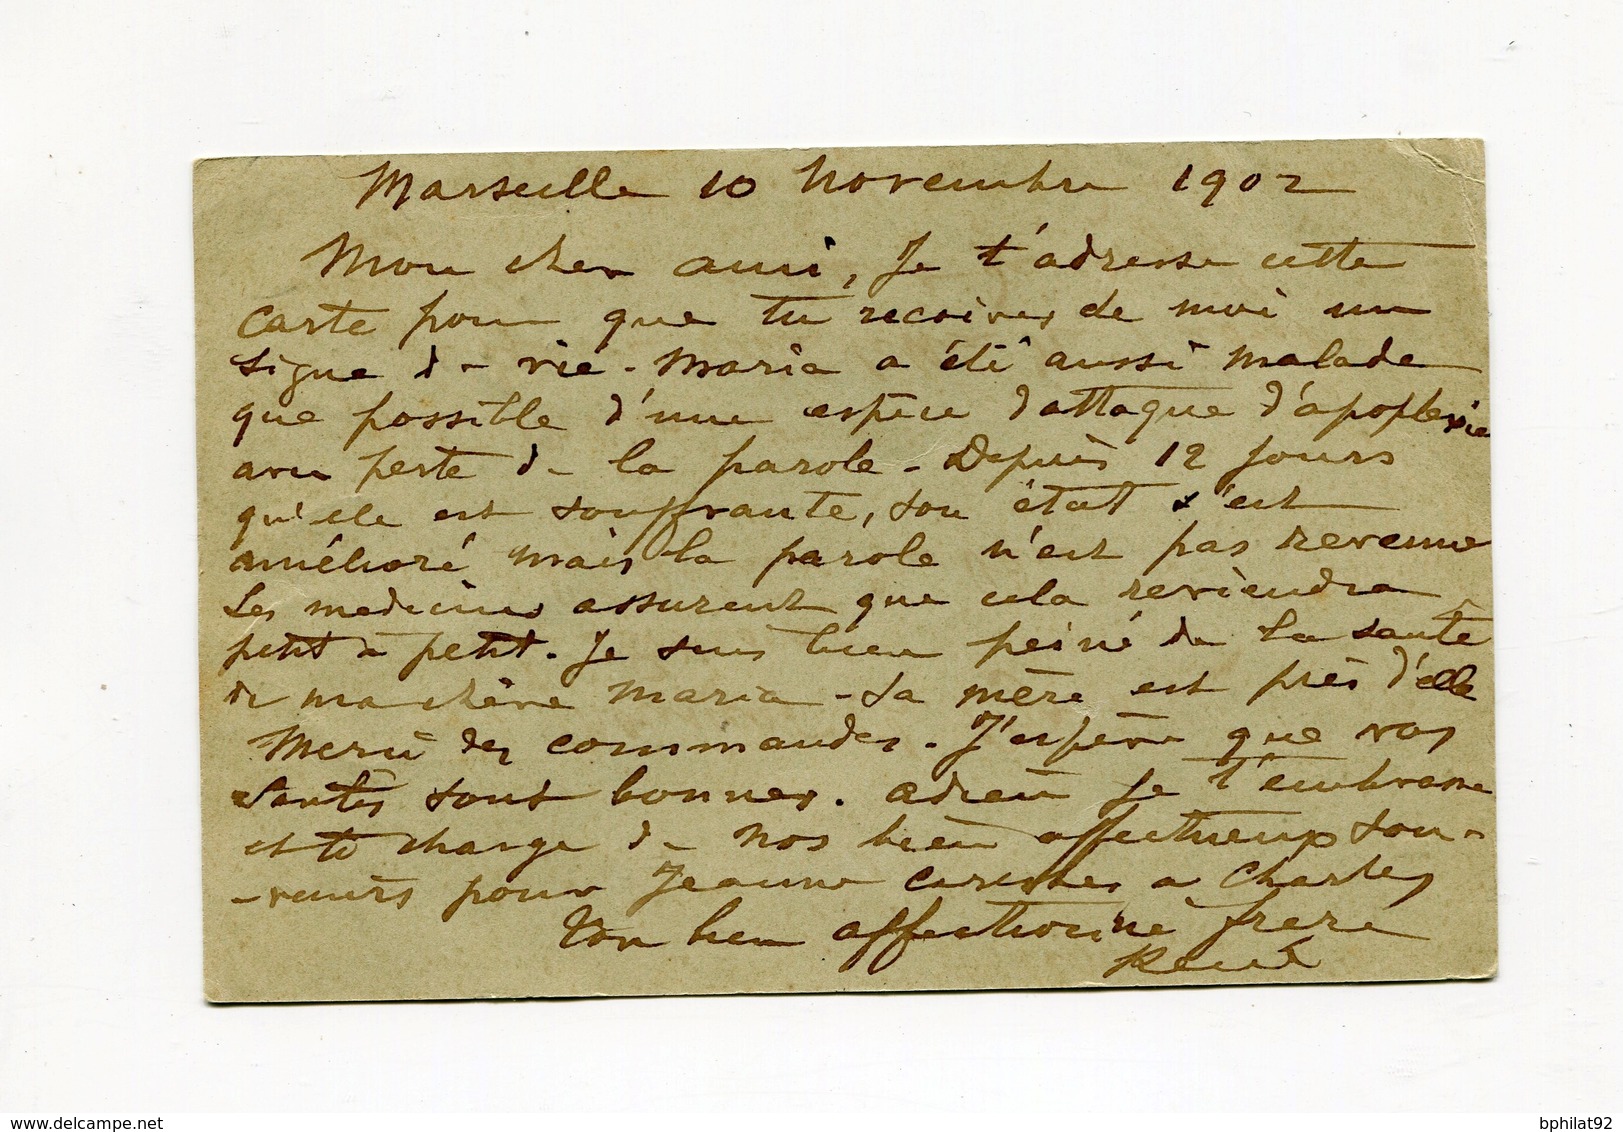 Marseille 10 Novembre 1902
Mon cher ami, Je t'adresse cette
carte pour que tu recoives de moi un
signe de vie. Maria a été aussi malade
que possible d'une espèce d'attaque d'apoplexie
avec perte de la parole. Depuis 12 jours
qu'elle est souffrante, son état s'est
amélioré mais la parole n'est pas revenue
Les medecins assurent que cela reviendra
petit à petit. Je suis bien peiné de la santé
de ma chère Maria - Sa mère est près d'elle
Merci des commandes. J'espère que vos
santés sont bonnes. adieu je t'embrasse
et te charge de nos bien affectueux sou-
-venirs pour Jeanne a Charles
Ton bien affectionné frere
René
delcampe.net
bphilat92